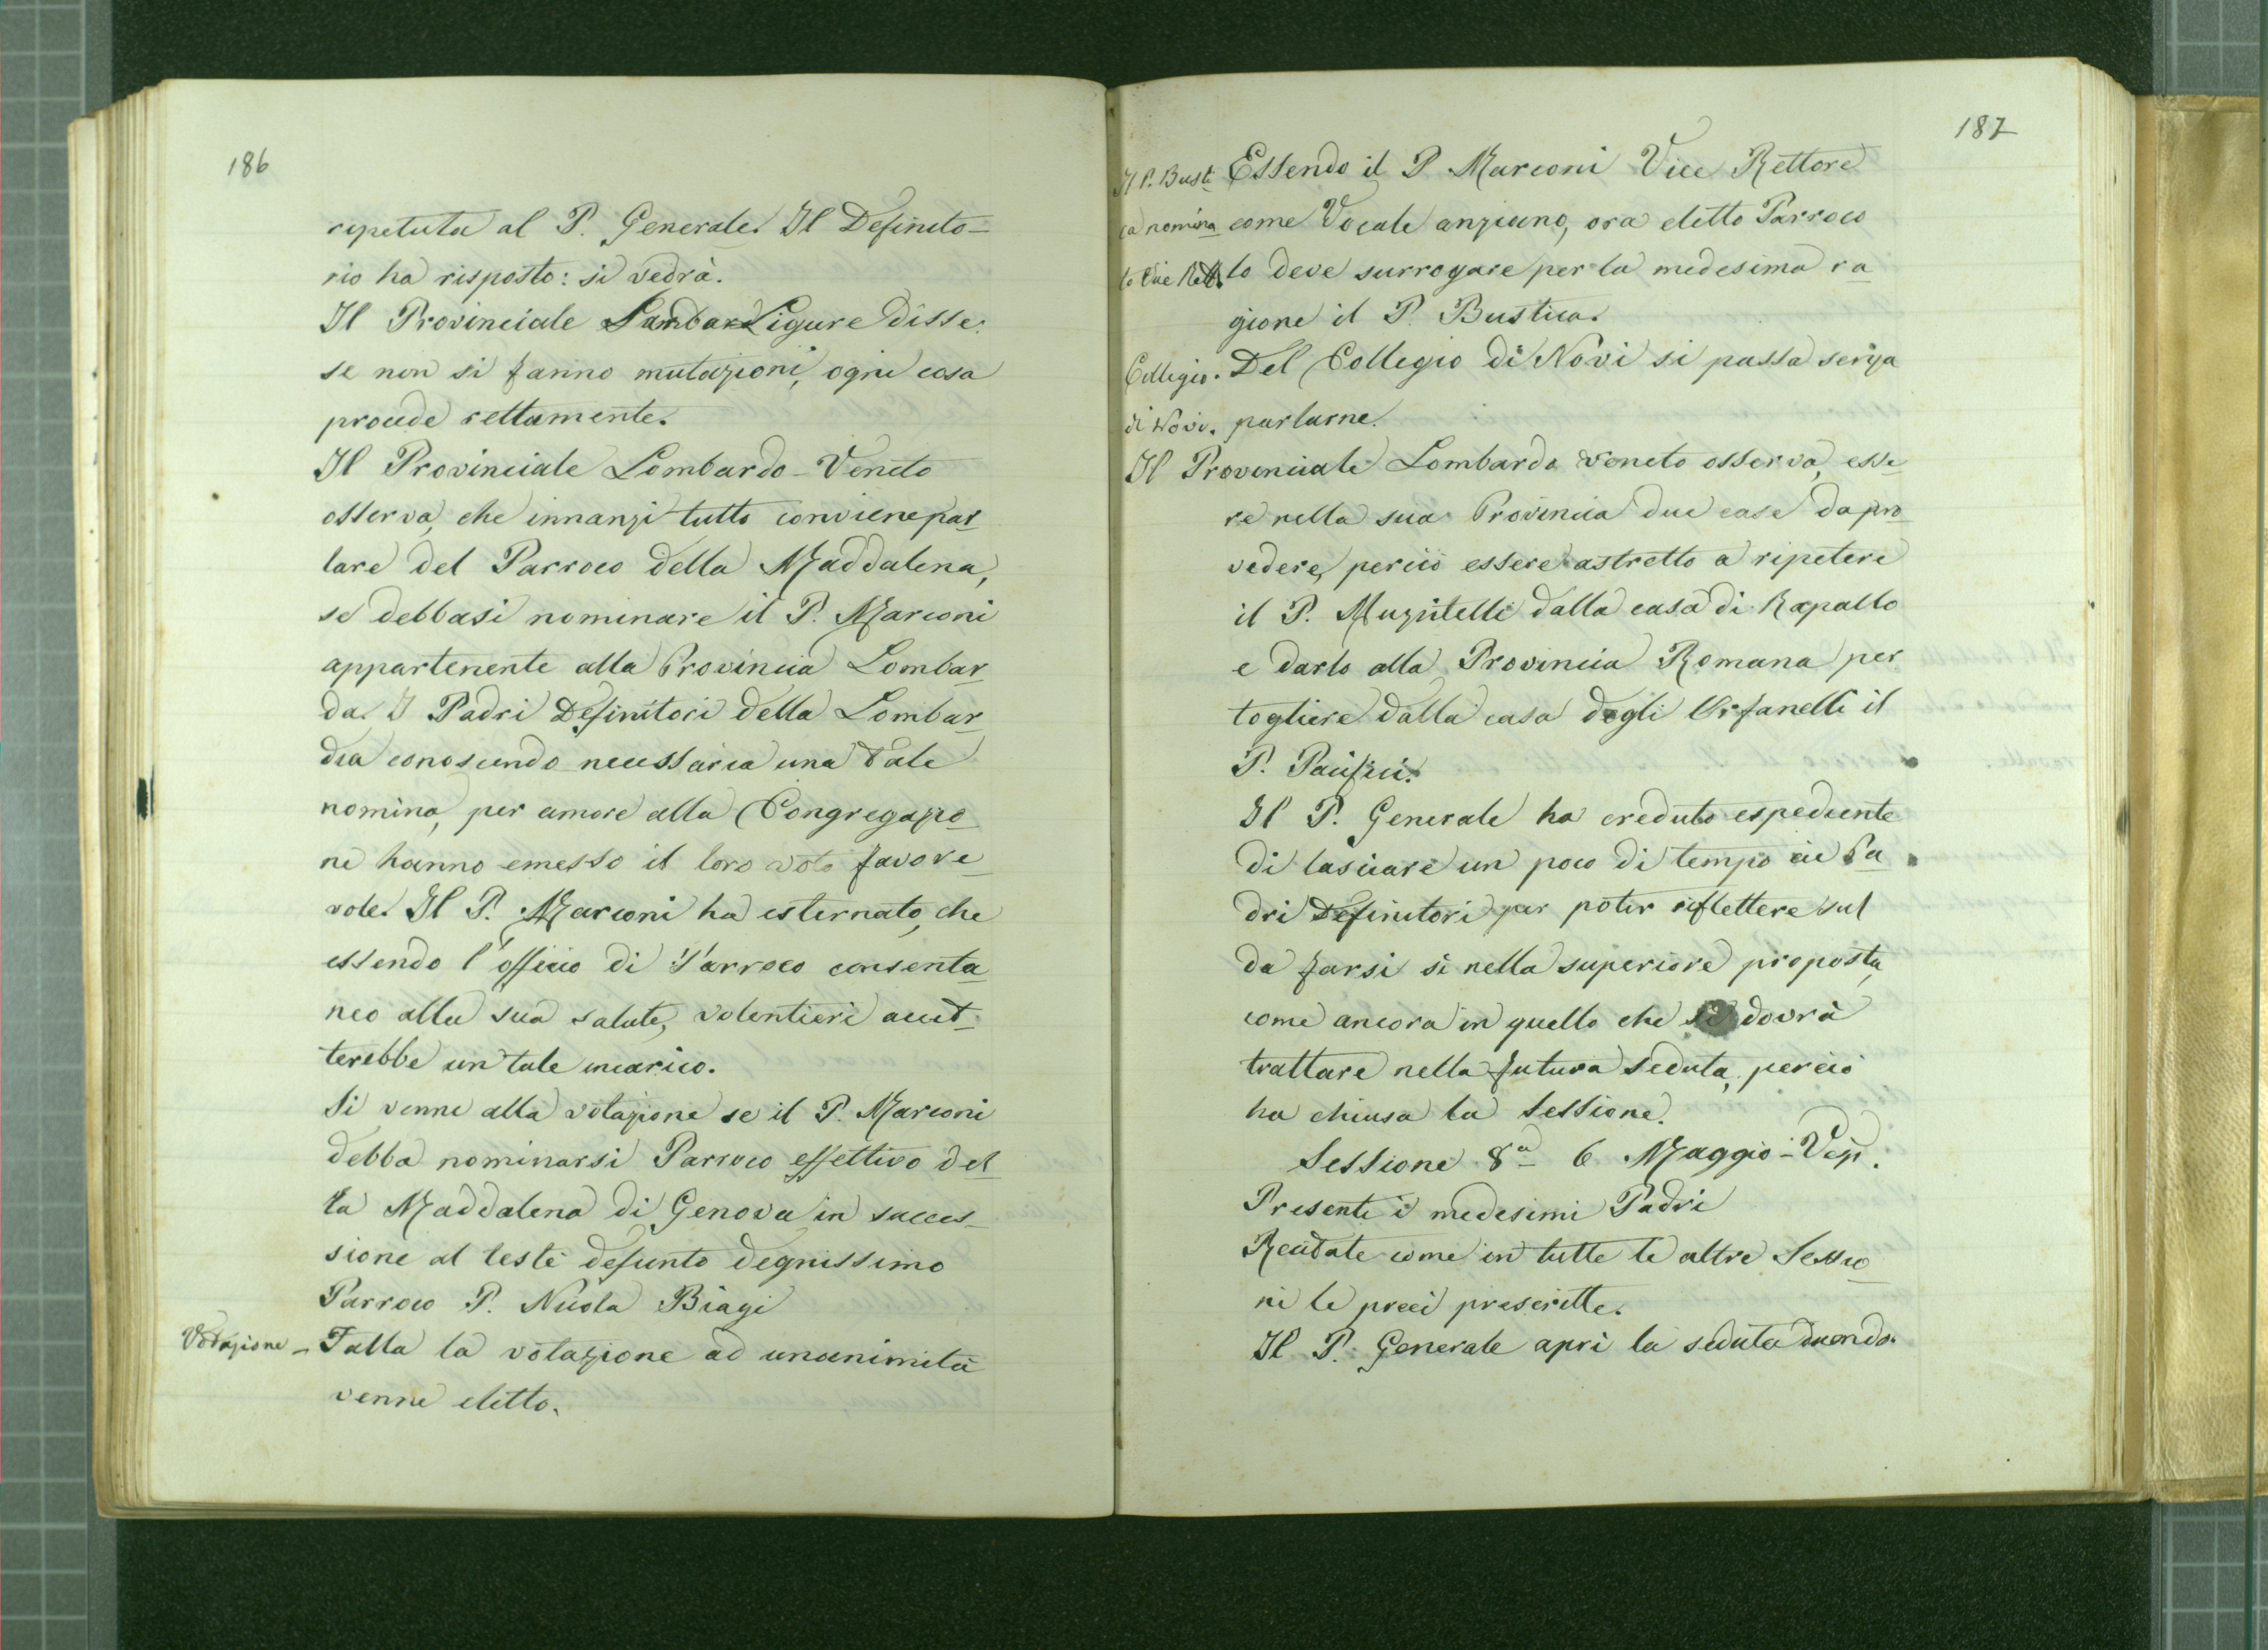 186
ripetuta al P. Generale. Il Definito-
rio ha risposto: si vedrà.
Il Provinciale Ligure disse:
se non si fanno mutazioni, ogni cosa
procede rettamente.
Il Provinciale Lombardo-Veneto
osserva, che innanzi tutto conviene par
lare del Parroco della Maddalena,
se debbasi nominare il P. Marconi
appartenente alla Provincia Lombar
da. I Padri Definitori della Lombar
dia conoscendo necessaria una tale
nomina, per amore alla Congregazio
ne hanno emesso il loro voto favore
vole. Il P. Marconi ha esternato, che
essendo l'officio di Parroco consenta
neo alla sua salute, volentieri accet
terebbe un tale incarico.
Si venne alla votazione se il P. Marconi
debba nominarsi Parroco effettivo del
la Maddalena di Genova in succes-
sione al testè defunto degnissimo
Parroco P. Nicola Biagi
Votazione - Fatta la votazione ad unanimità
venne eletto.
187
Il P. Busti Essendo il P Marconi Vice Rettore
ca nomina come Vocale anziano, ora eletto Parroco
to Vice Rett. lo deve surrogare per la medesima ra
gione il P. Bustica.
Collegio. Del Collegio di Novi si passa senza
di Novi. parlarne.
Il Provinciale Lombardo Veneto osserva, esse
re nella sua Provincia due case da pro
vedere, perciò essere astretto a ripetere
il P. Muzitelli dalla casa di Rapallo
e darlo alla Provincia Romana per
togliere dalla casa degli Orfanelli il
P. Pacifici.
Il P. Generale ha creduto espediente
di lasciare un poco di tempo ai Pa
dri Definitori per poter riflettere sul
da farsi sì nella superiore proposta,
come ancora in quello che si dovrà
trattare nella futura seduta, perciò
ha chiusa la sessione.
Sessione 8a 6 Maggio - Vesp.
Presenti i medesimi Padri
Recitate come in tutte le altre Sessio
ni le preci prescritte.
Il P. Generale aprì la seduta dicendo.